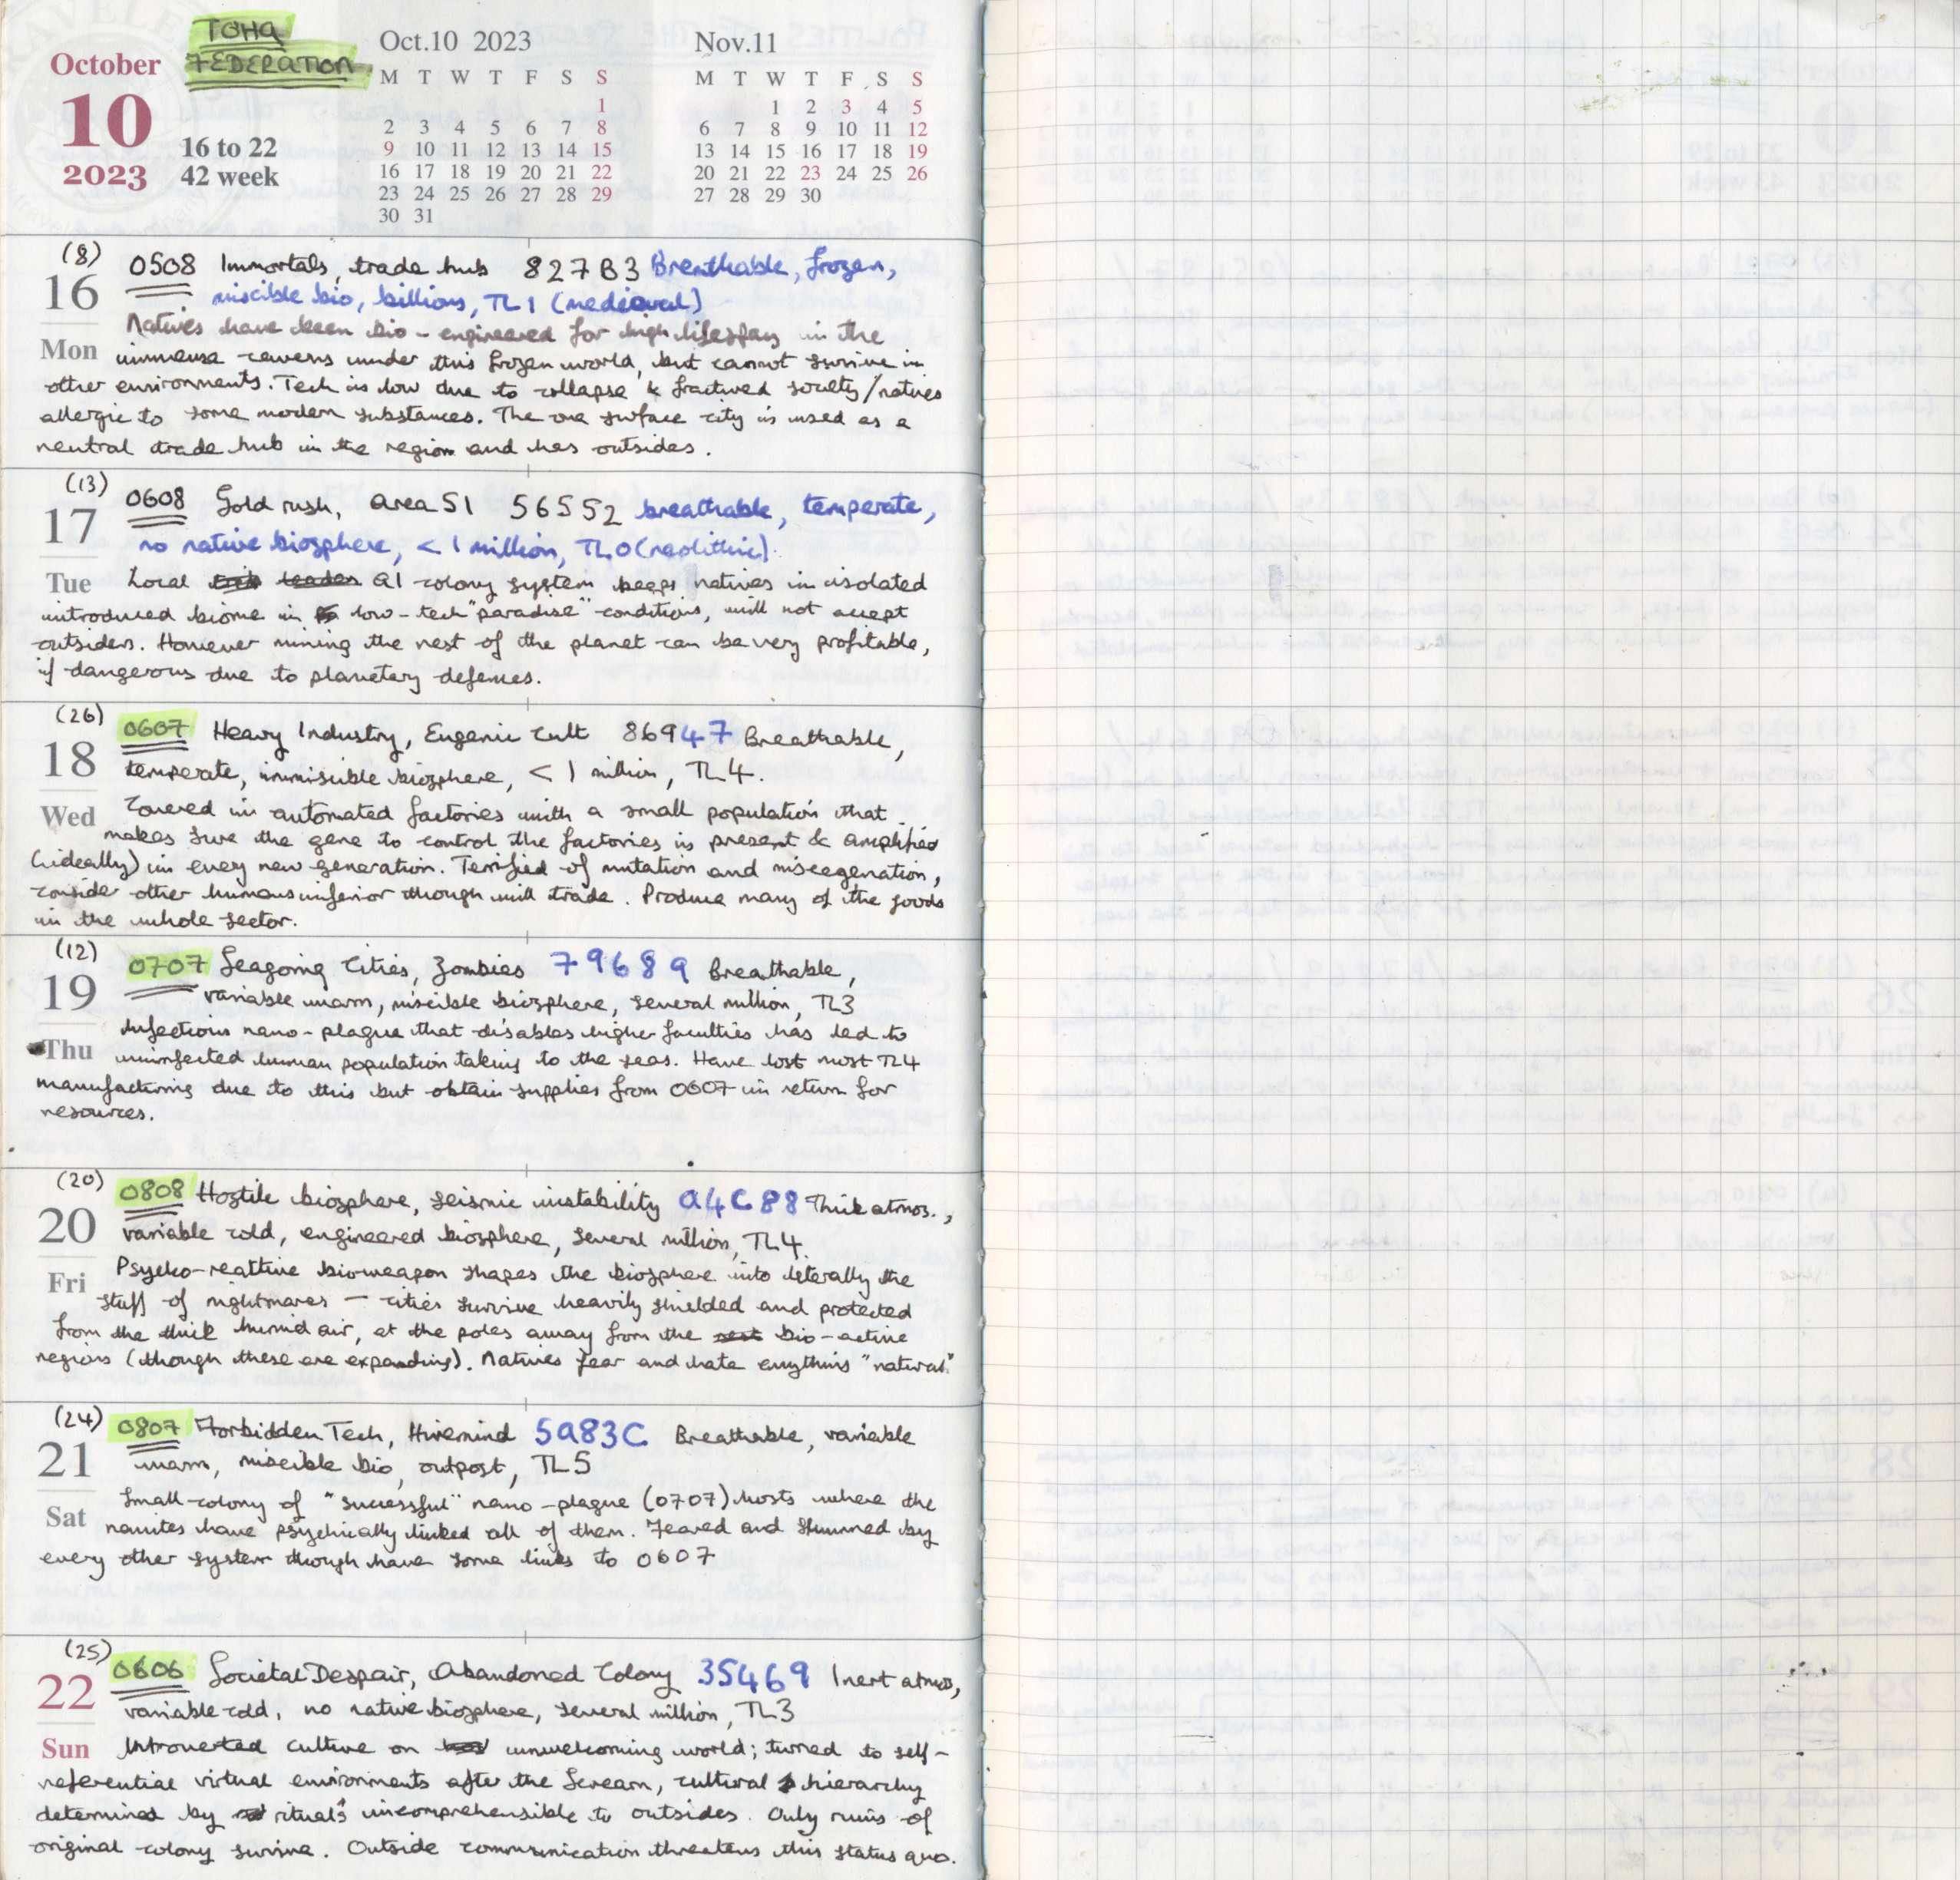 TOHA
FEDERATION
October
10
2023
16 to 22
42 week
Oct.10 2023
M T W T F S S
1
2 3 4 5 6 7 8
9 10 11 12 13 14 15
16 17 18 19 20 21 22
23 24 25 26 27 28 29
30 31
Nov.11
M T W T F S S
1 2 3 4 5
6 7 8 9 10 11 12
13 14 15 16 17 18 19
20 21 22 23 24 25 26
27 28 29 30
(8)
16
Mon
0508 Immortals, trade hub 827B3 Breathable, frozen,
miscible bio, billions, TL1 (medieval)
Natives have been bio-engineered for high lifespan in the
immense caverns under this frozen world, but cannot survive in
other environments. Tech is low due to collapse & fractured society/natives
allergic to some modern substances. The one surface city is used as a
neutral trade hub in the region and has outsides.
(13)
17
Tue
0608 Gold rush, area 51 56552 breathable, temperate,
no native biosphere, <1 million, TL0 (neolithic).
Local AI colony system keeps natives in isolated
introduced biome in low-tech "paradise" conditions, will not accept
outsiders. However mining the rest of the planet can be very profitable,
if dangerous due to planetary defenses.
(26)
18
Wed
0607 Heavy Industry, Eugenic Cult 86947 Breathable,
temperate, immiscible biosphere, <1 million, TL4.
Covered in automated factories with a small population that
makes sure the gene to control the factories is present & amplified
(ideally) in every new generation. Terrified of mutation and miscegenation,
consider other humans inferior though will trade. Produce many of the goods
in the whole sector.
(12)
19
Thu
0707 Seagoing Cities, Zombies 79689 Breathable,
variable warm, miscible biosphere, several million, TL3
Infectious nano-plague that disables higher faculties has led to
uninfected human population taking to the seas. Have lost most TL4
manufacturing due to this but obtain supplies from 0607 in return for
resources.
(20)
20
Fri
0808 Hostile biosphere, seismic instability A4C88 Thick atmos.,
variable cold, engineered biosphere, several million, TL4.
Psycho-reactive bioweapon shapes the biosphere into literally the
stuff of nightmares — cities survive heavily shielded and protected
from the thick humid air, at the poles away from the bio-active
regions (though these are expanding). Natives fear and hate anything "natural"
(24)
21
Sat
0807 Forbidden Tech, Hivemind 5A83C Breathable, variable
warm, miscible bio, outpost, TL5
Small colony of "successful" nano-plague (0707) hosts where the
nanites have psychically linked all of them. Feared and shunned by
every other system though have some links to 0607
(25)
22
Sun
0606 Societal Despair, Abandoned Colony 35469 Inert atmos,
variable cold, no native biosphere, several million, TL3
Introverted culture on unwelcoming world; turned to self-
referential virtual environments after the Scream, cultural hierarchy
determined by rituals incomprehensible to outsides. Only ruins of
original colony survive. Outside communication threatens this status quo.